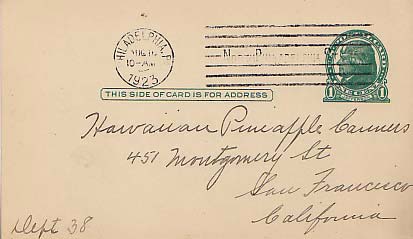 PHILADELPHIA, PA.
AUG
10-AM
1923
THIS SIDE OF CARD IS FOR ADDRESS
1 1
Hawaiian Pineapple Canners
451 Montgomery St
San Francisco
California
Dept 38